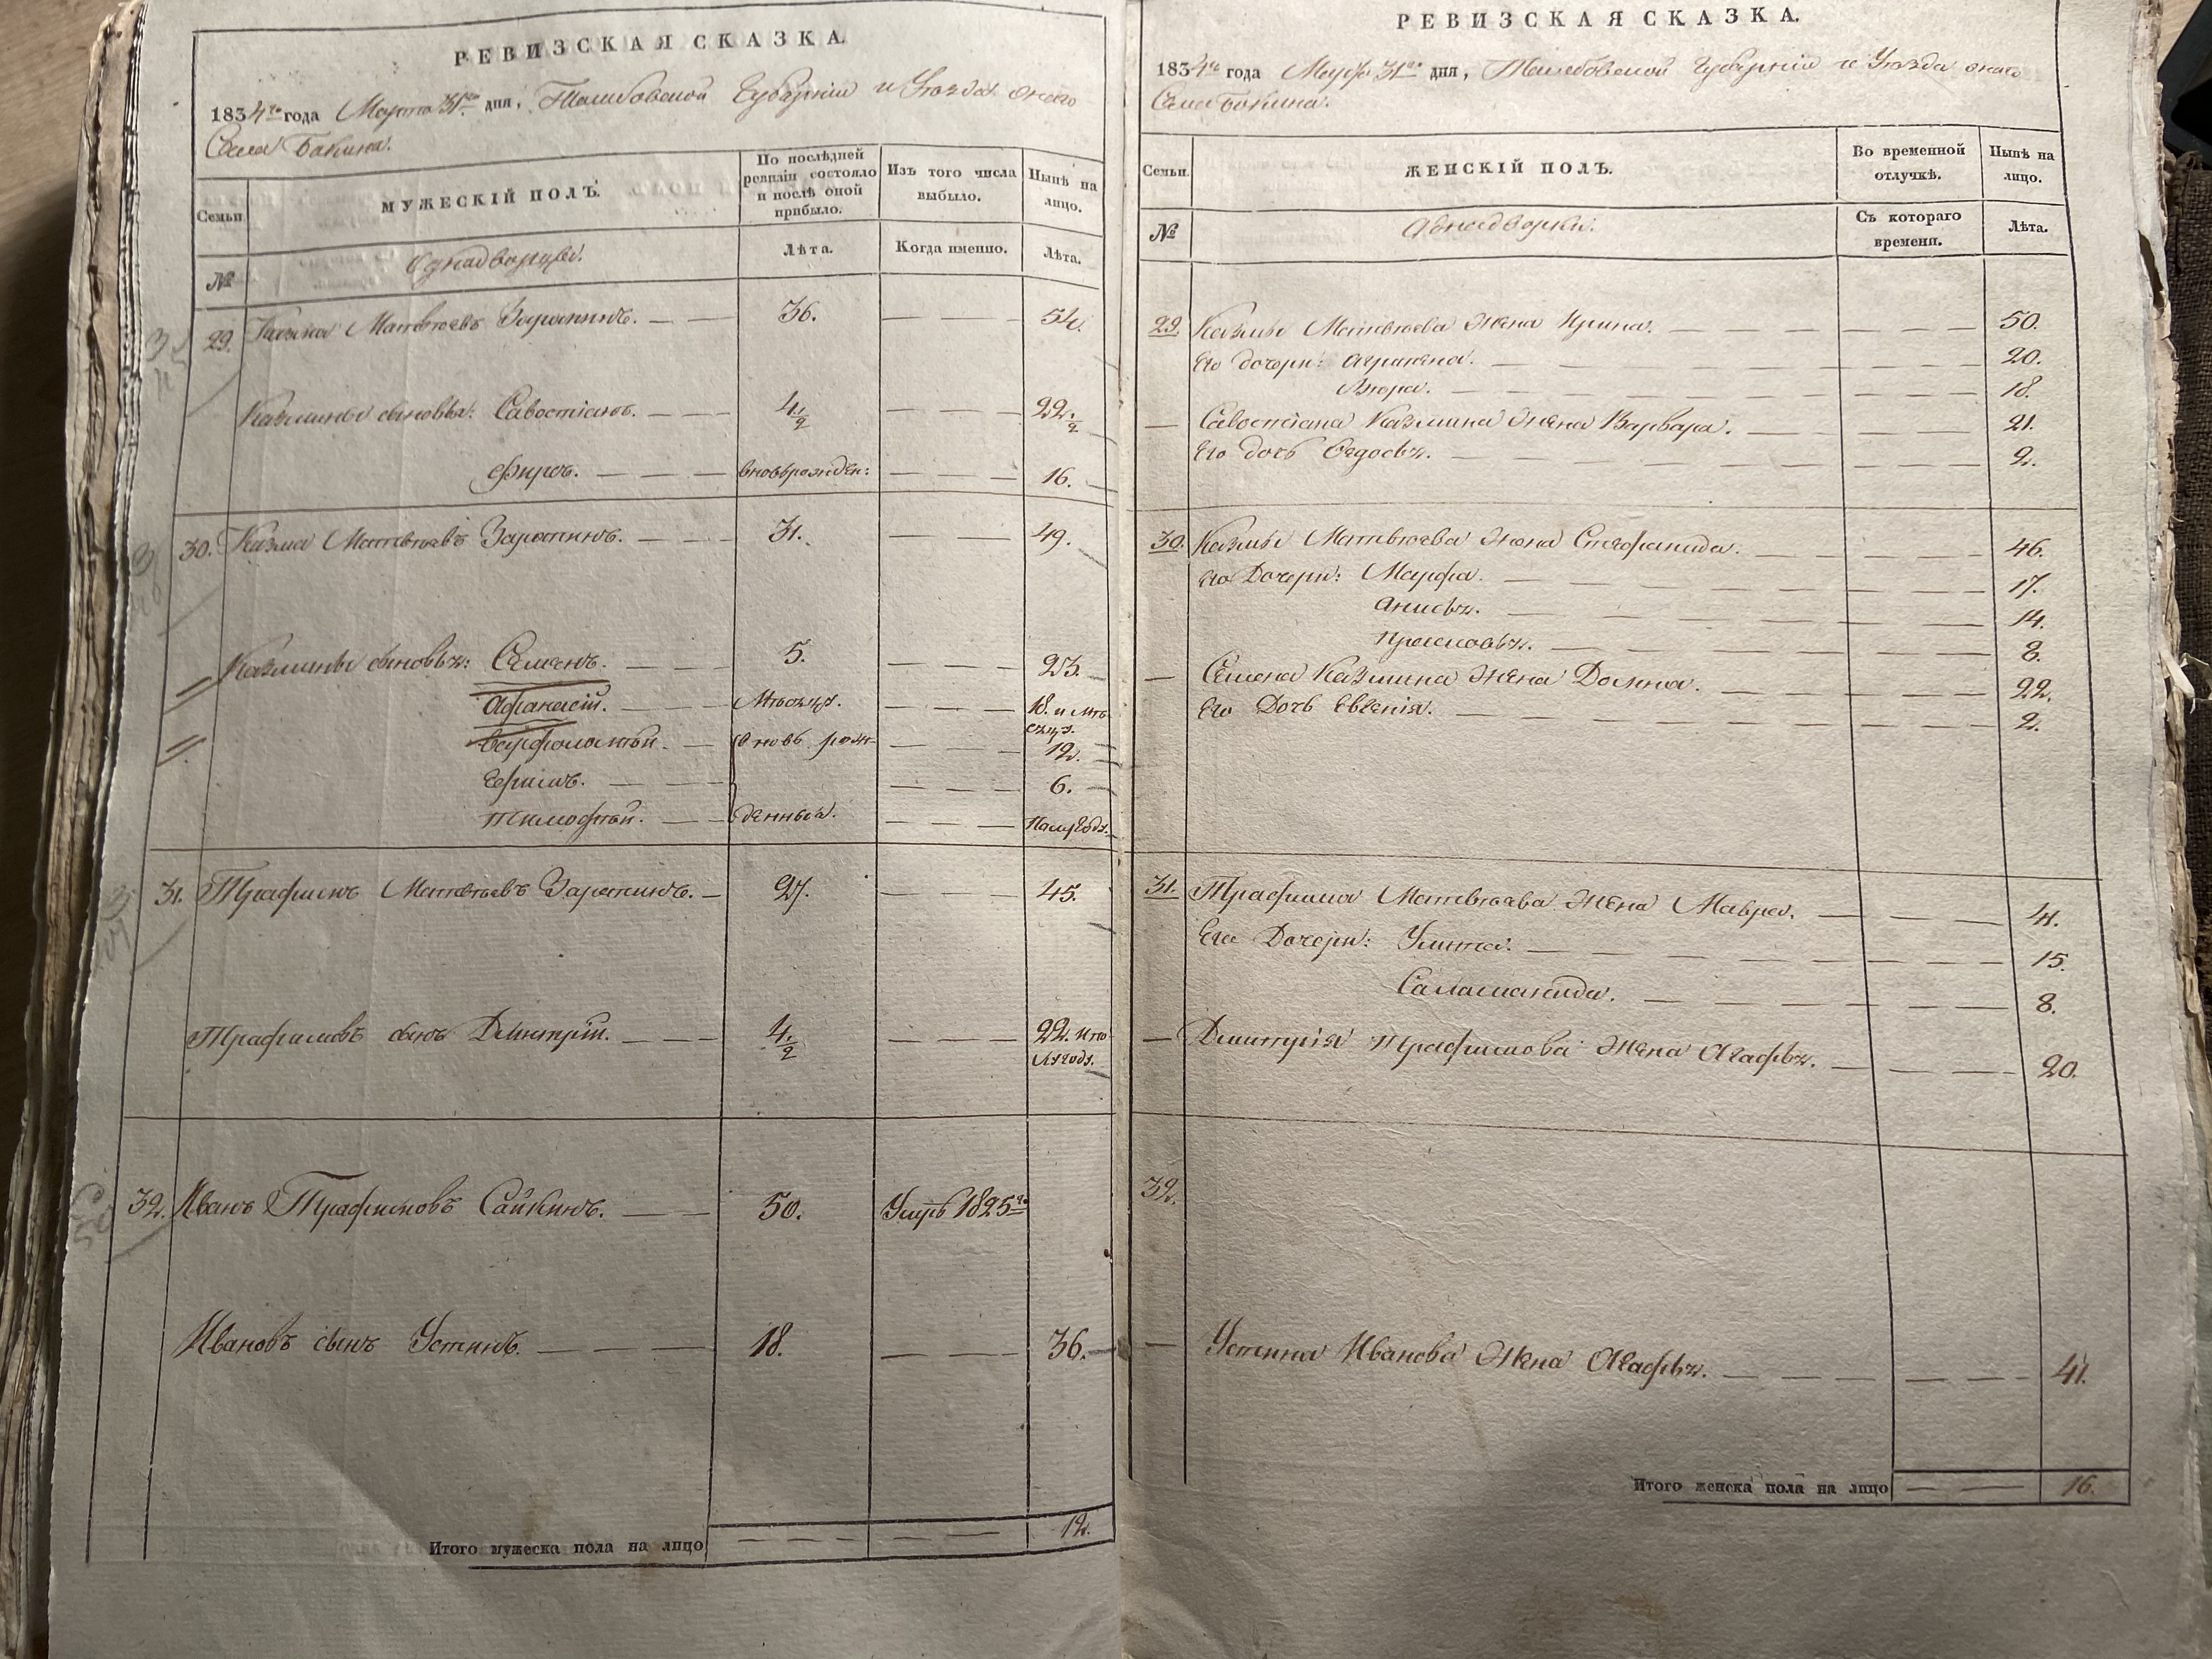 РЕВИЗСКАЯ СКАЗКА.
1834го года Марта 31го дня, Тамбовской Губернии и Уезда оного
Села Бокина.
Семьи.
МУЖЕСКІЙ ПОЛЪ.
По послѣдней ревизіи состояло и послѣ оной прибыло.
Изъ того числа выбыло.
Нынѣ на лицо.
№
Однодворцы.
Лѣта.
Когда именно.
Лѣта.
29. Казьма Матвѣевъ Заратинъ. 36. 54.
Казмины сыновья: Савостіанъ. 4 1/2 22 1/2
Фирсъ. вновьрожден: 16.
30. Казма Матвѣевъ Заратинъ. 31. 49.
Казмины сыновья: Семенъ. 5. 23.
Афанасій. Мѣсяца. 18. и мѣсяцъ.
Варфоломѣй. вновь рож- 12.
Ефимъ. 6.
Тимофѣй. денныя. Полугоду.
31. Трафимъ Матвѣевъ Заратинъ. 27. 45.
Трафимовъ сынъ Дмитрій. 4 1/2 22. и полугоду.
32. Иванъ Трафимовъ Сайкинъ. 50. Умръ 1825го
Ивановъ сынъ Устинъ. 18. 36.
Итого мужеска пола на лицо 12.
РЕВИЗСКАЯ СКАЗКА.
1834го года Марта 31го дня, Тамбовской Губерніи и Уезда оного
Села Бокина.
Семьи.
ЖЕНСКІЙ ПОЛЪ.
Во временной отлучкѣ.
Нынѣ на лицо.
№
Аднадворки.
Съ котораго времени.
Лѣта.
29. Казмы Матвѣева жена Ирина. 50.
Его дочери: Аграфена. 20.
18.
Савостіана Казмина жена Варвара. 21.
Его дочь Федосья. 2.
30. Казмы Матвѣева жена Стефанида. 46.
Его Дочери: Марфа. 17.
Анисья. 14.
Прасковья. 8.
Семена Казмина жена Домна. 22.
Его Дочь Евгенія. 2.
31. Трафима Матвѣева жена Мавра. 41.
Его Дочери: Улита. 15.
Саламанида. 8.
Дмитрія Трафимова жена Агафья. 20.
32.
Устина Иванова жена Агафья. 41.
Итого женска пола на лицо 16.